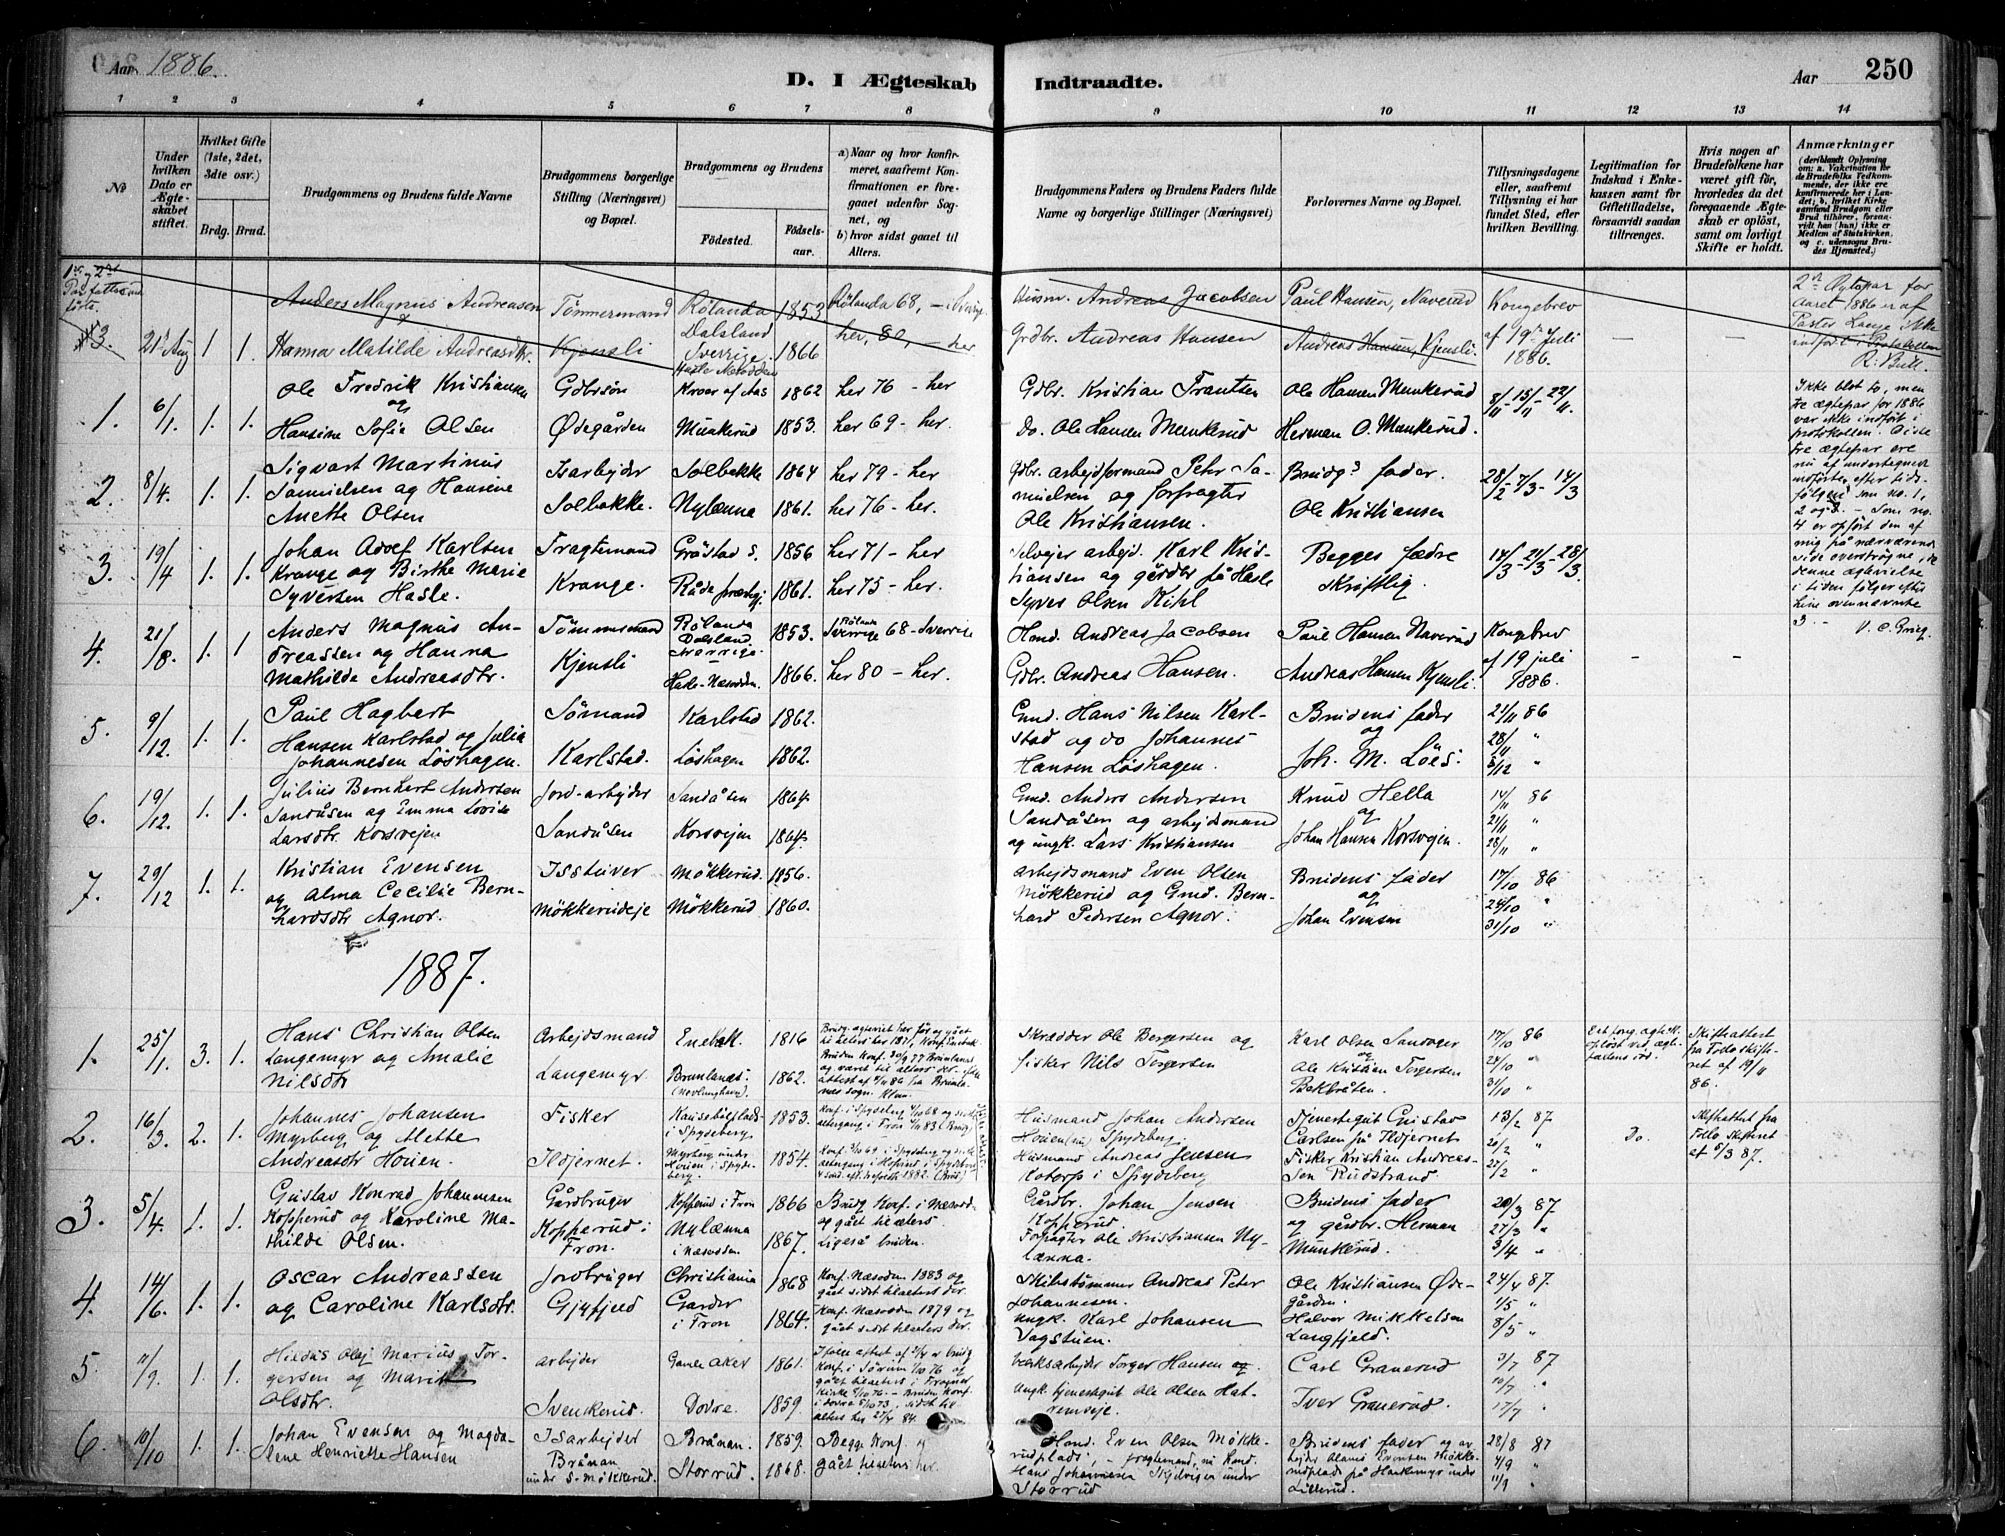 Aar 1886.
D. I Ægteskab Indtraadte.
Aar 250
1 2 3 4 5 6 7 8 9 10 11 12 13 14
No
Under hvilken Dato er Ægteskabet stiftet.
Hvilket Gifte (1ste, 2det, 3die osv.)
Brdg. Brud.
Brudgommens og Brudens fulde Navne
Brudgommens borgerlige Stilling (Næringsvei) og Bopæl.
Brudgommens og Brudens
Fødested. Fødselsaar.
a) Naar og hvor konfirmeret, saafremt Konfirmationen er foregaaet udenfor Sognet, og
b) hvor sidst gaaet til Alters.
Brudgommens Faders og Brudens Faders fulde Navne og borgerlige Stillinger (Næringsvei)
Forlovernes Navne og Bopæl.
Tillysningsdagene eller, saafremt Tillysning ei har fundet Sted, efter hvilken Bevilling.
Legitimation for Indskud i Enkekassen samt for Giftetilladelse, forsaavidt saadan tiltrænges.
Hvis nogen af Brudefolkene har været gift før, hvorledes da det foregaaende Ægteskab er opløst, samt om lovligt Skifte er holdt.
Anmærkninger
(deriblandt Oplysning om: a. Vakcination for de Brudefolks Vedkommende, der ikke ere konfirmerede her i Landet; b. hvilket Kirkesamfund Brudgom eller Brud tilhører, forsaavidt han (hun) ikke er Medlem af Statskirken, og c. udensogns Brudes Hjemsted.)
3. 21 Aug 1. 1. Anders Magnus Andreasen
Hanna Matilde Andreasdtr.
Tømmermand
Kjensli
Rølanda Dalsland Sverrige 1853
1866
Rølanda 68, – Sverrig
her, 80, – her
Husm. Andreas Jacobsen
Grdbr. Andreas Hansen
Paul Hansen, Naverud
Andreas Hansen, Kjensli.
Kongebrev af 19de Juli 1886.
2det Ægtepar for Aaret 1886 er af Pastor Lange ikke indført i Protokollen
R. Bull.
1. 6/1. 1. 1. Ole Fredrik Kristiansen
og
Hansine Sofie Olsen
Gdbrsøn
Ødegården
Kroer af Aas 1862
Munkerud 1853.
her 76 – her
her 69 – her.
Gdbr. Kristian Frantsen
Do. Ole Hansen Munkerud
Ole Hansen Munkerud
Herman O. Munkerud.
8/11 – 15/11 – 22/11.
Ikke blot to, men
tre ægtepar for 1886
var ikke indført i
protokollen. Disse
tre ægtepar ere
nu af undertegnede
indførte, efter tids-
følgen som no. 1,
2 og 3. – Som no.
4 er opført den af
mig på nærværende
side overstrøgne, da
denne ægtevielse
i tiden følger efter
hine ovennævnte
3. –
V. C. Grieg.
2. 8/4. 1. 1. Sigvart Martinus
Samuelsen og Hansine
Anette Olsen
Isarbejder
Solbakke.
Solbakke 1864
Nylænna 1861.
her 79 – her
her 76 – her.
Gdbr. arbejdsformand Pehr Sa-
muelsen og forpagter
Ole Kristiansen.
Brudgs fader.
Ole Kristiansen
28/2 – 7/3 – 14/3
3. 19/4 1. 1. Johan Adolf Karlsen
Krange og Birthe Marie
Syversen Hasle.
Fragtemand
Krange.
Gråstad S. 1856
Råde præstgj. 1861.
her 71 – her
her 75 – her.
Selvejer arbejd. Karl Kris-
tiansen og gårdbr på Hasle
Syver Olsen Kihl
Begges fædre
skriftlig
14/3 – 21/3 – 28/3.
4. 21/8. 1. 1 Anders Magnus An-
dreassen og Hanna
Mathilde Andreasdtr.
Tømmermand
Kjensli
Rølanda Dalsland Sverrige. 1853.
Hasle-Næsodden. 1866.
Rølanda Sverrige 68 – Sverrige
her 80 – her.
Hmd. Andreas Jacobsen
Gdbr. Andreas Hansen.
Paul Hansen Naverud
Andreas Hansen Kjensli.
Kongebrev
af 19 juli
1886.
– –
5. 9/12. 1. 1. Paul Hagbart
Hansen Karlstad og Julia
Johannesen Løshagen.
Sømand
Karlstad.
Karlstad 1862.
Løshagen 1862.
Gmd. Hans Nilsen Karl-
stad og do Johannes
Hansen Løshagen.
Brudens fader
og
Joh. M. Löes.
21/11 86
28/11 "
5/12 "
6. 19/12. 1. 1. Julius Bernhart Andersen
Sandåsen og Emma Lovise
Larsdtr. Korsvejen
Jord-arbejder
Sandåsen
Sandåsen 1864.
Korsvejen 1864.
Gmd. Anders Andersen
Sandåsen og arbejdsmand
og ungk. Lars Kristiansen
Knud Hella
og
Johan Hansen Korsvejen.
14/11 86
21/11 "
28/11 "
7. 29/12 1. 1. Kristian Evensen
og Alma Cecilie Bern-
hardsdtr Agnor.
Isstuver
Møkkerudeje
Møkkerud. 1856.
Møkkerud 1860.
Arbejdsmand Even Olsen
Møkkerud og Gmd. Bern-
hard Pedersen Agnor.
Brudens fader
og
Johan Evensen
17/10 86
24/10 "
31/10 "
1887.
1. 25/1. 3. 1. Hans Christian Olsen
Langemyr og Amalie
Nilsdtr
Arbejdsmand
Langemyr.
Enebak. 1816
Brunlanes (Nevlunghavn). 1862.
Skrædder Ole Bergersen og
fisker Nils Torgersen
Karl Olsen Sandvger
og
Ole Kristian Torgersen
Bakbråten.
17/10 86
24/10 "
31/10 "
Skifteattest
fra Follo skifte-
ret af 19/11
86.
2. 16/3. 2. 1. Johannes Johansen
Myrberg og Mette
Andreasdtr Houen.
Fisker
Ildjernet.
i Spydeberg. 1853.
Myrberg under
Houen i Spyde-
berg. 1854.
Husmand Johan Andersen
Houen (nu) Spydeberg.
Husmand Andreas Jensen
Kotorp i Spydeberg
Tjenestegut Gustav
Carlsen på Ildjernet
Fisker Kristian Andreas-
sen Rudstrand.
13/2 87
20/2 "
27/2 "
Do.
Skifteattest fra
Follo skifteret
af 5/3 87.
3. 5/4. 1. 1. Gustav Konrad Johannesen
Kopperud og Karoline Ma-
thilde Olsen.
Gårdbruger
Kopperud i
Fron.
Kopperud i Fron 1866
Nylænna
i Næsodden 1867.
Brudg Konf. i Næsodd.
og gået til alters.
Ligeså bruden.
Gårdbr. Johan Jensen
Kopperud.
Forpagter Ole Kristiansen Ny-
lænna.
Brudens fader
og gårdbr. Herman
Munkerud.
20/3 87
27/3 "
3/4 "
4. 14/6. 1. 1. Oscar Andreassen
og Caroline Karlsdtr.
Jordbruger
Gjyfjeld
Christiania 1868
Garder
i Fron 1864.
Konf. Næsodden 1883 og
gået sidst til alters der.
Konf. Næsodden 1879 og
gået sidst til alters der.
Skibstømmer Andreas Peter
Johannesen.
Ungk. Karl Johansen
Vagstuen.
Ole Kristiansen Øde-
gården.
Halvor Mikkelsen
Langfjeld.
24/4 87.
1/5 "
8/5 "
5. 11/9. 1. 1. Hildus Olaf Marius Tor-
gersen og Marit
Olsdtr.
Arbejder
Svenkerud.
Gamle Aker 1861.
Dovre. 1859.
Værksarbejder Torger Hansen og
Ungk. tjenestegut Ole Olsen Hat-
remseje.
Carl Granerud
Iver Granerud.
3/7 87
10/7 "
17/7 "
6. 10/10 1. 1. Johan Evensen og Magda-
lene Henriette Hansen
Isarbejder
Brånan
under S. Møkkerud.
Brånan. 1859.
Storrud. 1868.
Begge Konf. og
gået til alters her.
Hmd. Even Olsen Møkke-
rudplads, – fragtemand, nu Hmd.
Hans Johannesen under
Storrud
Brudens fader og ar-
bejder Evensen Møkke-
rudplads på under
Lillerud.
28/8 87
4/9 "
11/9 "